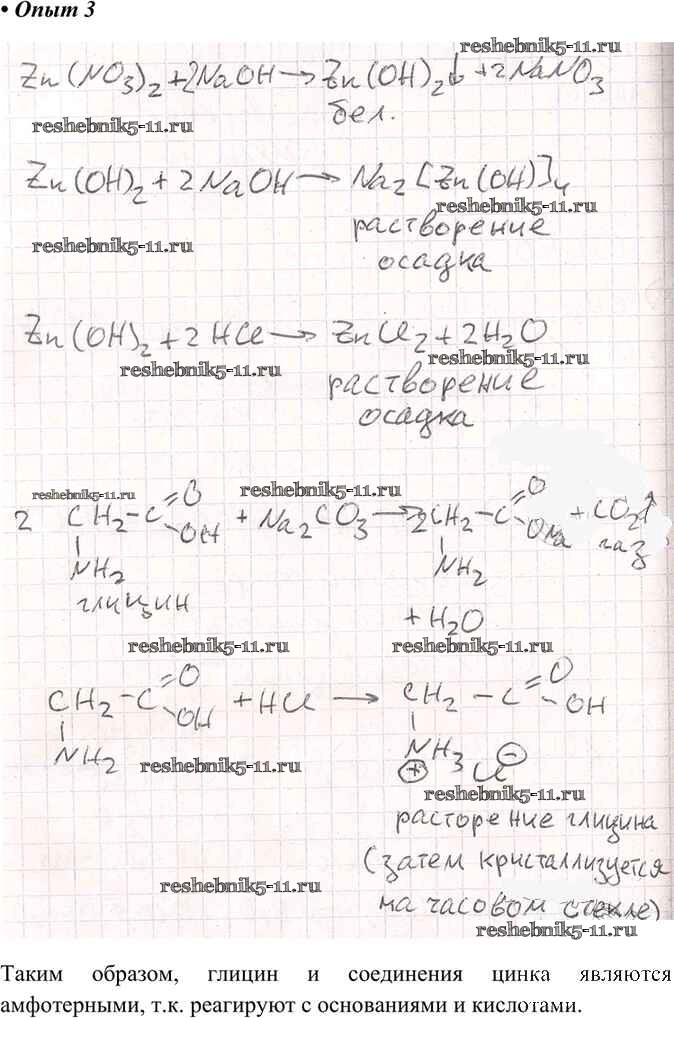 • Опыт 3
reshebnik5-11.ru
Zn(NO3)2 + 2NaOH → Zn(OH)2↓ + 2NaNO3
reshebnik5-11.ru
бел.
Zn(OH)2 + 2NaOH → Na2[Zn(OH)]4
reshebnik5-11.ru
растворение
reshebnik5-11.ru
осадка
Zn(OH)2 + 2HCl → ZnCl2 + 2H2O
reshebnik5-11.ru
reshebnik5-11.ru
растворение
осадка
reshebnik5-11.ru
reshebnik5-11.ru
2 CH2 – C =O OH + Na2CO3 → 2CH2 – C =O ONa + CO2↑
газ
NH2 NH2
глицин
+ H2O
reshebnik5-11.ru
reshebnik5-11.ru
CH2 – C =O OH + HCl → CH2 – C =O OH
NH2 NH3 ⊕ Cl ⊖
reshebnik5-11.ru
reshebnik5-11.ru
расторение глицина
(затем кристаллизуется
reshebnik5-11.ru
на часовом стекле)
reshebnik5-11.ru
Таким образом, глицин и соединения цинка являются
амфотерными, т.к. реагируют с основаниями и кислотами.